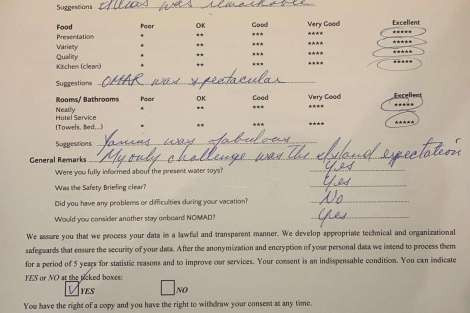 Suggestions was remarkable
Food Poor OK Good Very Good Excellent
Presentation * ** *** **** *****
Variety * ** *** **** *****
Quality * ** *** **** *****
Kitchen (clean) * ** *** **** *****
Suggestions OMAR was spectacular
Rooms/ Bathrooms Poor OK Good Very Good Excellent
Neatly * ** *** **** *****
Hotel Service
(Towels, Bed...) * ** *** **** *****
Suggestions was fabulous
General Remarks My only challenge was the island expectation
Were you fully informed about the present water toys? Yes
Was the Safety Briefing clear? Yes
Did you have any problems or difficulties during your vacation? No
Would you consider another stay onboard NOMAD? Yes
We assure you that we process your data in a lawful and transparent manner. We develop appropriate technical and organizational
safeguards that ensure the security of your data. After the anonymization and encryption of your personal data we intend to process them
for a period of 5 years for statistic reasons and to improve our services. Your consent is an indispensable condition. You can indicate
YES or NO at the ticked boxes:
YES NO
You have the right of a copy and you have the right to withdraw your consent at any time.